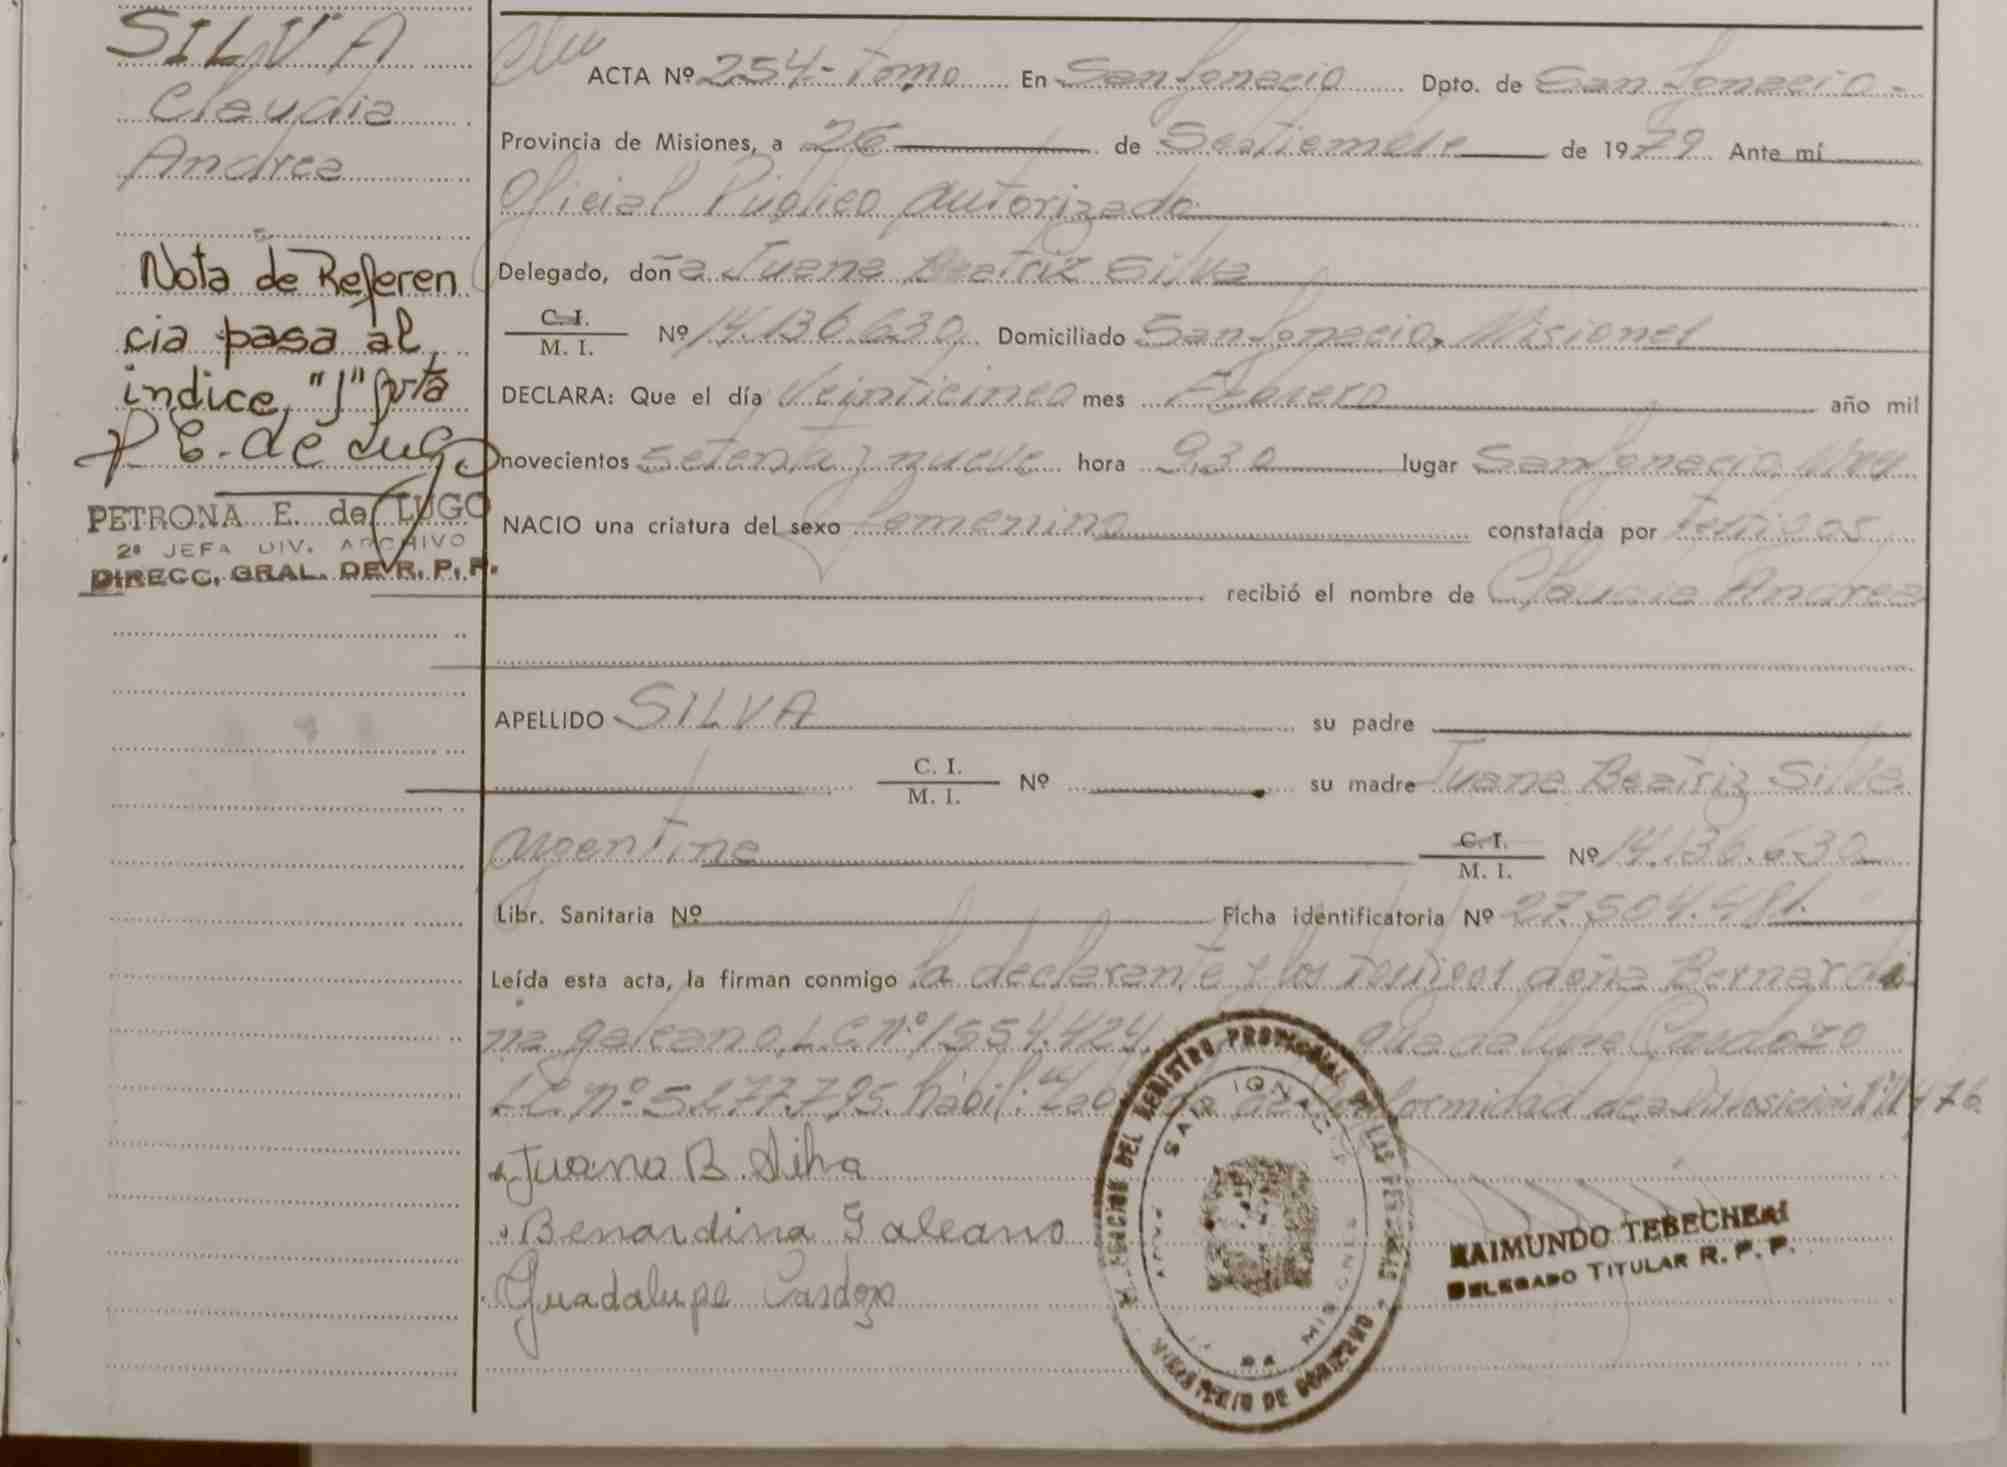 SILVA
Claudia
Andrea
Nota de Referen
cia pasa al
indice "J"
P. E. de Lugo
PETRONA E. de LUGO
2ª JEFA DIV. ARCHIVO
DIRECC. GRAL. DE R. P. P.
ACTA Nº 254- Tomo En San Ignacio Dpto. de San Ignacio-
Provincia de Misiones, a 26 de Septiembre de 1979 Ante mí
Oficial Público Autorizado
Delegado, doña Juana Beatriz Silva
C. I. / M. I. Nº 14.136.630 Domiciliado San Ignacio, Misiones
DECLARA: Que el día Veinticinco mes Febrero año mil
novecientos setenta y nueve hora 9,30 lugar San Ignacio,
NACIO una criatura del sexo femenino constatada por Testigos
recibió el nombre de Claudia Andrea
APELLIDO SILVA su padre
C. I. / M. I. Nº su madre Juana Beatriz Silva
Argentina C. I. / M. I. Nº 14.136.630
Libr. Sanitaria Nº Ficha identificatoria Nº 27.504.481.
Leída esta acta, la firman conmigo la declarante y los testigos doña Bernardi
na Galeano, L.C. Nº 1554.424, Guadalupe Cardozo
L.C. Nº 5.277.795. hábil: formidad Disposición
Juana B. Silva
Benardina Galeano
Guadalupe Cardozo
DEL REGISTRO PROVINCIAL DE LAS PERSONAS
SAN IGNACIO
MISIONES
MINISTERIO DE GOBIERNO
RAIMUNDO TEBECHERI
DELEGADO TITULAR R. P. P.